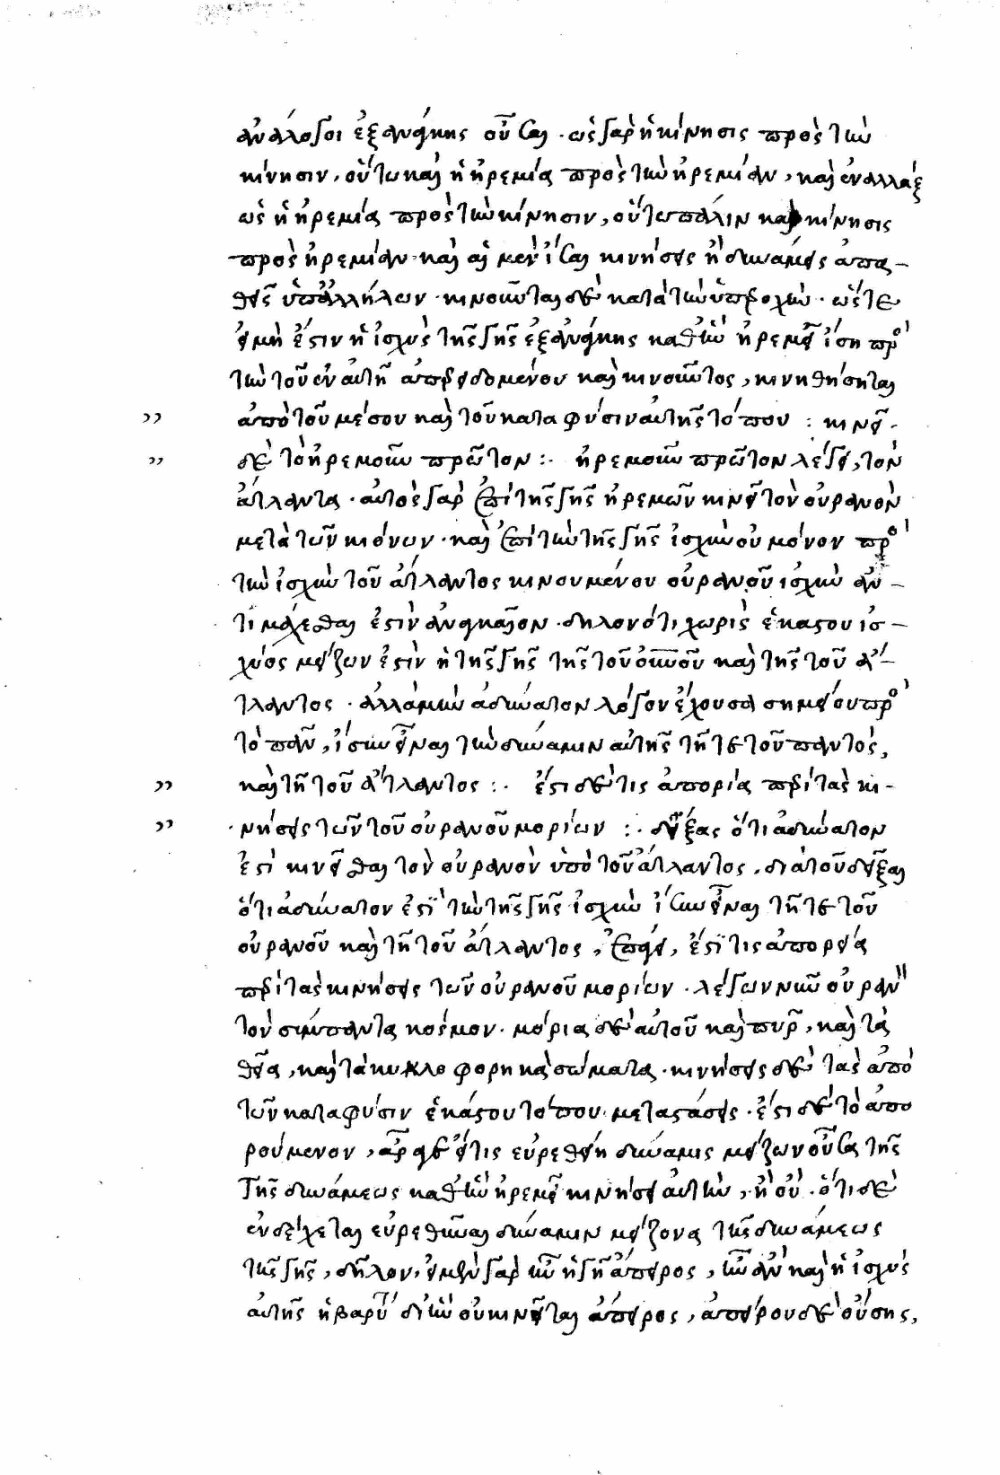 ἀνάλογοι ἐξανάγκης οὖσαι · ὡς γὰρ ἡ κίνησις πρὸς τὴν
κίνησιν, οὕτω καὶ ἡ ἠρεμία πρὸς τὴν ἠρεμίαν, καὶ ἐναλλὰξ
ὡς ἡ ἠρεμία πρὸς τὴν κίνησιν, οὕτω πάλιν καὶ κίνησις
πρὸς ἠρεμίαν · καὶ αἱ μὲν ἴσαι κινήσεις ἢ δυνάμεις ἀπα-
θεῖς ὑπἀλλήλων · κινοῦνται δὲ κατὰ τὴν ὑπεροχήν · ὥστε
εἰ μή ἐστιν ἡ ἰσχὺς τῆς γῆς ἐξανάγκης καθ' ἣν ἠρεμεῖ ἴση πρὸς
τὴν τοῦ ἐν αὐτῇ ἀπερειδομένου καὶ κινοῦντος, κινηθήσεται
” ἀπὸ τοῦ μέσου καὶ τοῦ κατα φύσιν αὐτῆς τόπου : κινεῖ
” δὲ τὸ ἠρεμοῦν πρῶτον :· ἠρεμοῦν πρῶτον λέγει, τὸν
ἄτλαντα · αὐτὸς γὰρ ἐπὶ τῆς γῆς ἠρεμῶν κινεῖ τὸν οὐρανὸν
μετὰ τῶν κιόνων · καὶ ἐπὶ τὴν τῆς γῆς ἰσχὺν οὐ μόνον πρὸς
τὴν ἰσχὺν τοῦ ἄτλαντος κινουμένου οὐρανοῦ ἰσχὺν ἀν-
τιμάχεσθαι ἐστὶν ἀναγκαῖον · δηλονότι χωρὶς ἑκάστου ἰσ-
χύος μείζων ἐστὶν ἡ τῆς γῆς τῆς τοῦ οὐνοῦ καὶ τῆς τοῦ ἄ-
τλαντος · ἀλλὰ μὴν ἀδύνατον λόγον ἔχουσα σημείου πρὸς
τὸ πᾶν, ἴσην εἶναι τὴν δύναμιν αὐτῆς τῇ τε τοῦ παντὸς,
” καὶ τῇ τοῦ ἄτλαντος :· ἔστι δέ τις ἀπορία περὶ τὰς κι-
” νήσεις τῶν τοῦ οὐρανοῦ μορίων :· δείξας ὅτι ἀδύνατον
ἐστὶ κινεῖσθαι τὸν οὐρανὸν ὑπὸ τοῦ ἄτλαντος, διὰ τοῦ δεῖξαι
ὅτι ἀδύνατον ἐστὶ τὴν τῆς γῆς ἰσχὺν ἴσην εἶναι τῇ τε τοῦ
οὐρανοῦ καὶ τῇ τοῦ ἄτλαντος, ἐπάγει, ἔστι τις ἀπορία
περὶ τὰς κινήσεις τῶν οὐρανοῦ μορίων · λέγων νῦν οὐρανὸν
τὸν σύμπαντα κόσμον · μόρια δὲ αὐτοῦ καὶ πῦρ, καὶ τὰ
θεῖα, καὶ τὰ κυκλοφορηκὰ σώματα · κινήσεις δὲ τὰς ἀπὸ
τῶν κατα φύσιν ἑκάστου τόπου μεταστάσεις · ἔστι δὲ τὸ ἀπο
ρούμενον, ἆρ' ἂν εἴ τις εὑρεθείη δύναμις μείζων οὖσα τῆς
Γῆς δυνάμεως καθ' ἣν ἠρεμεῖ κινήσει αὐτὴν, ἢ οὔ · ὅτι δὲ
ἐνδέχεται εὑρεθῆναι δύναμιν μείζονα τῆς δυνάμεως
τῆς γῆς, δῆλον, εἰ μὲν γὰρ ἦν ἡ γῆ ἄπειρος, ἦν ἂν καὶ ἡ ἰσχὺς
αὐτῆς ἡ βαρύτης δι' ἣν οὐ κινεῖται ἄπειρος, ἀπείρου δὲ οὔσης,